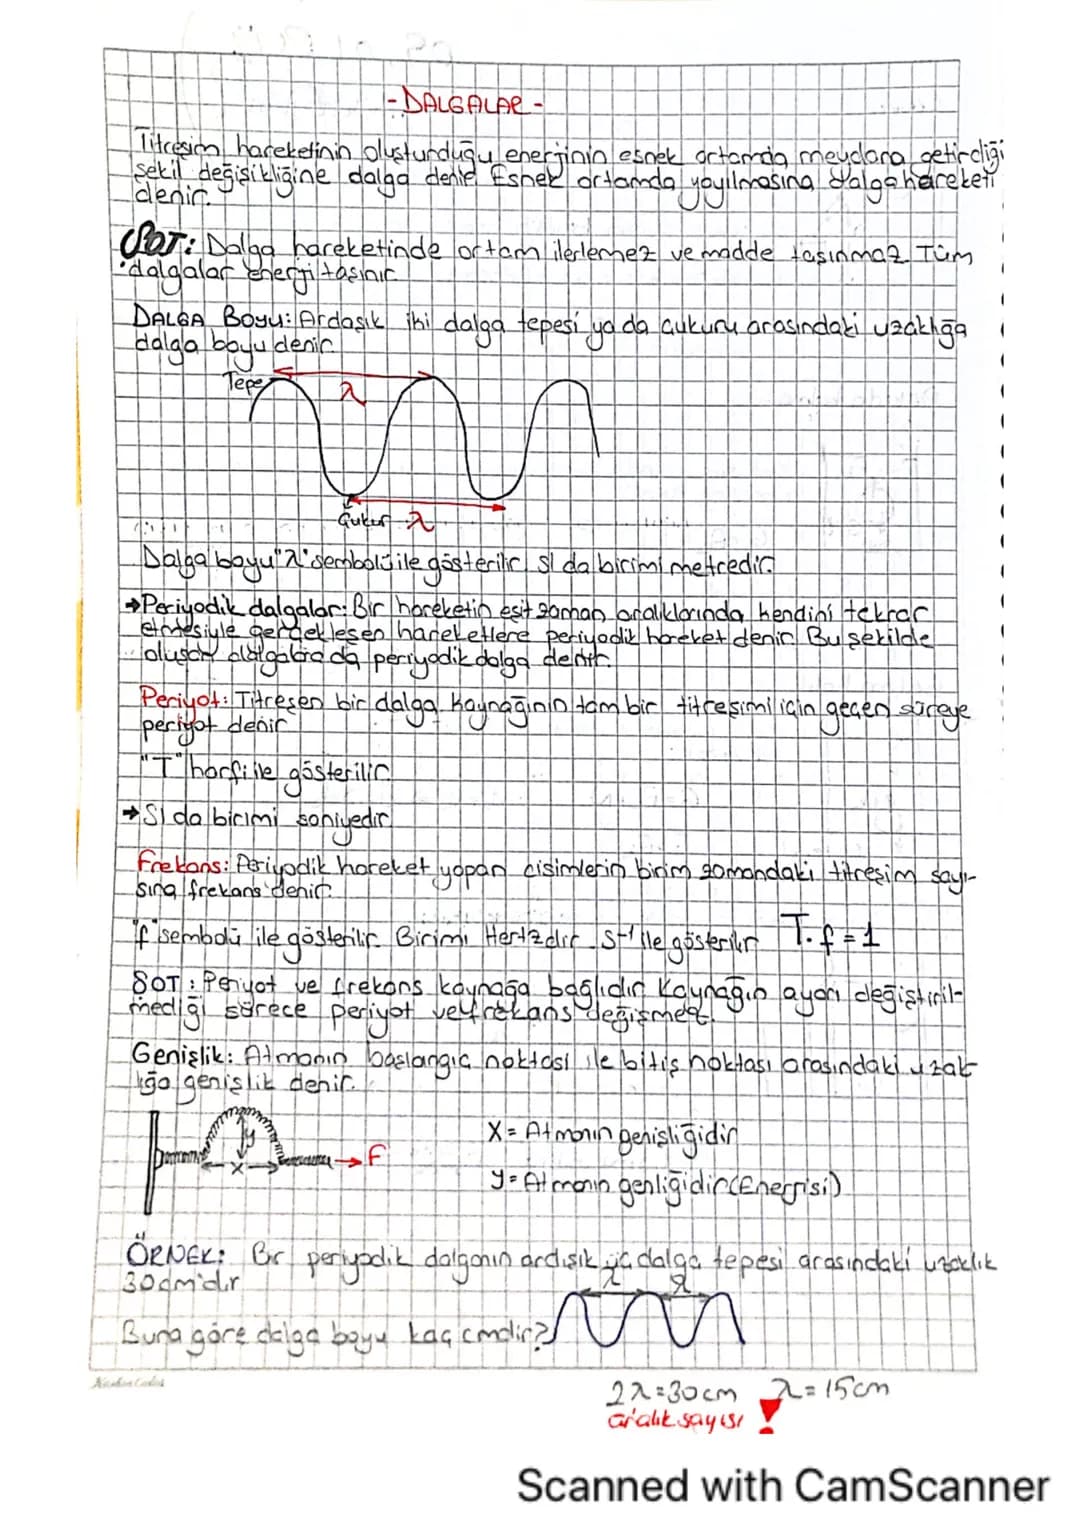 -DALGALAR-
Titreşim hareketinin oluşturduğu enerjinin esnek ortamda meydana getirdiği
şekil değişikliğine dalga denir. Esnek ortamda yayılmasına dalga hareketi
denir.
SOT: Dalga hareketinde ortam ilerlemez ve madde taşınmaz. Tüm
dalgalar enerji taşınır.
DALGA Boyu: Ardaşık iki dalga tepesi ya da çukuru arasındaki uzaklığa
dalga boyu denir.
Tepe
λ
Çukur λ
Dalga boyu "λ" sembolü ile gösterilir. SI da birimi metredir.
→Periyodik dalgalar: Bir hareketin eşit zaman aralıklarında kendini tekrar
etmesiyle gerçekleşen hareketlere periyodik hareket denir. Bu şekilde
oluşan dalgalara da periyodik dalga denir.
Periyot: Titreşen bir dalga kaynağının tam bir titreşimi için geçen süreye
periyot denir
"T" harfi ile gösterilir.
→SI da birimi saniyedir.
Frekans: Periyodik hareket yapan cisimlerin birim zamandaki titreşim sayı-
sına frekans denir.
"f" sembolü ile gösterilir. Birimi Hertzdir. s⁻¹ ile gösterilir T.f=1
SOT: Periyot ve frekans kaynağa bağlıdır. Kaynağın ayarı değiştiril-
mediği sürece periyot ve frekans değişmez.
Genişlik: Atmanın başlangıç noktası ile bitiş noktası arasındaki uzak
lığa genişlik denir.
y
x
F
X= Atmanın genişliğidir
y= Atmanın genliğidir(Enerjisi)
ÖRNEK: Bir periyodik dalganın ardışık üç dalga tepesi arasındaki uzaklık
30cm'dir
λ λ
Buna göre dalga boyu kaç cmdir?
2λ=30cm λ=15cm
aralık sayısı !
Scanned with CamScanner